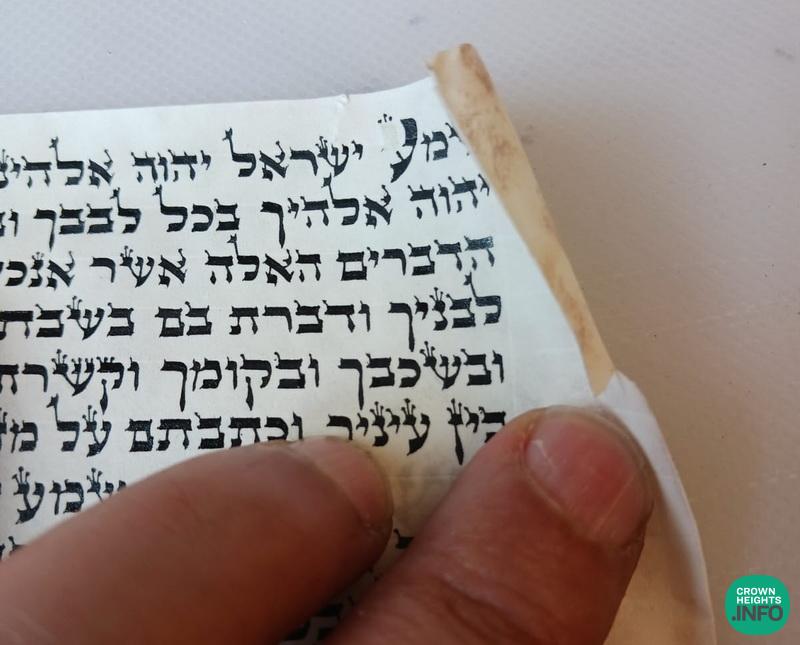 מע ישראל יהוה אלהינ
יהוה אלהיך בכל לבבך וב
הדברים האלה אשר אנכי
לבניך ודברת בם בשבת
ובשכבך ובקומך וקשרת
בין עיניך וכתבתם על מז
שמע
CROWN
HEIGHTS
.INFO